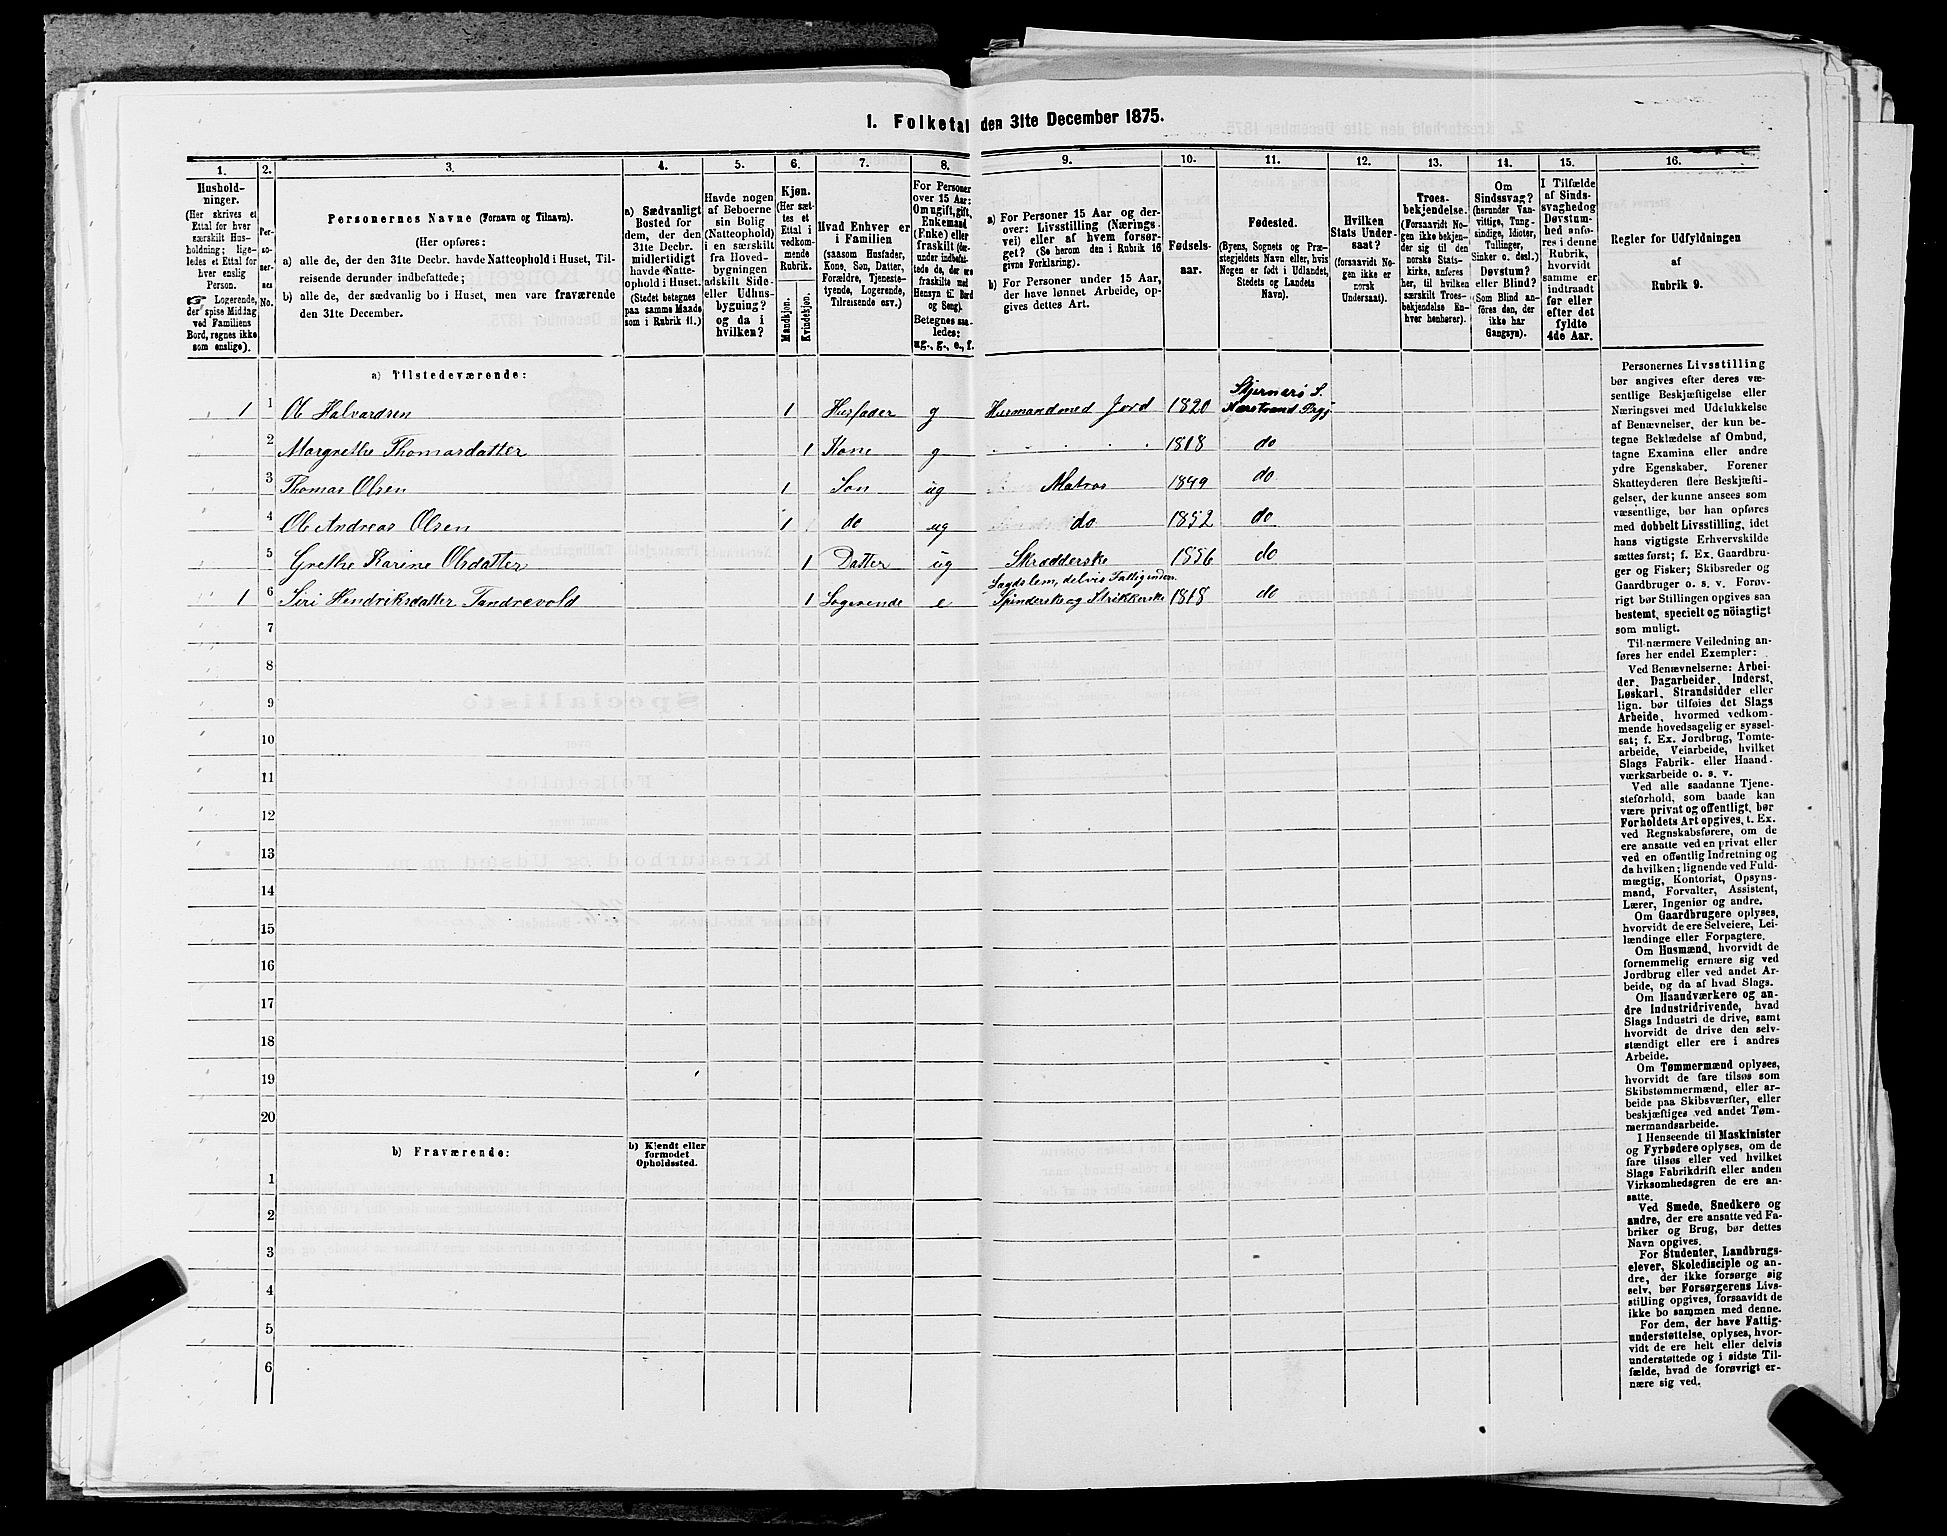 1. Folketal den 31te December 1875.
1. 2. 3. 4. 5. 6. 7. 8. 9. 10. 11. 12. 13. 14. 15. 16.
Hushold-
ninger.
(Her skrives et
Ettal for hver
særskilt Hus-
holdning; lige-
ledes et Ettal for
hver enslig
Person.
☞ Logerende,
der spise Middag
ved Familiens
Bord, regnes ikke
som enslige).
Per-
so-
ner-
nes
No.
Personernes Navne (Fornavn og Tilnavn).
(Her opføres:
a) alle de, der den 31te Decbr. havde Natteophold i Huset, Til-
reisende derunder indbefattede;
b) alle de, der sædvanlig bo i Huset, men vare fraværende
den 31te December.
a) Sædvanligt
Bosted for
dem, der den
31te Decbr.
midlertidigt
havde Natte-
ophold i Huset.
(Stedet betegnes
paa samme Maade
som i Rubrik 11.)
Havde nogen
af Beboerne
sin Bolig
(Natteophold)
i en særskilt
fra Hoved-
bygningen
adskilt Side-
eller Udhus-
bygning?
og da i
hvilken?
Kjøn.
(Her sæt-
tes et
Ettal i
vedkom-
mende
Rubrik.
Mandkjøn.
Kvindekjøn.
Hvad Enhver er
i Familien
(saasom Husfader,
Kone, Søn, Datter,
Forældre, Tjeneste-
tyende, Logerende,
Tilreisende osv.)
For Personer
over 15 Aar:
Om ugift, gift,
Enkemand
(Enke) eller
fraskilt (der-
under indbefat-
tede de, der ere
fraskilte med
Hensyn til Bord
og Seng).
Betegnes saa-
ledes:
ug., g., e., f.
a) For Personer 15 Aar og der-
over: Livsstilling (Nærings-
vei) eller af hvem forsør-
get? (Se herom den i Rubrik 16
givne Forklaring).
b) For Personer under 15 Aar,
der have lønnet Arbeide, op-
gives dettes Art.
Fødsels-
aar.
Fødested.
(Byens, Sognets og Præ-
stegjeldets Navn eller, hvis
Nogen er født i Udlandet,
Stedets og Landets
Navn).
Hvilken
Stats Under-
saat?
(forsaavidt No-
gen ikke er
norsk
Undersaat).
Troes-
bekjendelse.
(Forsaavidt No-
gen ikke bekjen-
der sig til den
norske Stats-
kirke, anføres
her, til hvilken
særskilt Troes-
bekjendelse En-
hver henhører).
Om
Sindssvag?
(herunder Van-
vittige, Tung-
sindige, Idioter,
Tullinger,
Sinker o. desl.)
Døvstum?
eller Blind?
(Som Blind an-
føres den, der
ikke har
Gangsyn).
I Tilfælde
af Sinds-
svaghed og
Døvstum-
hed anfø-
res i denne
Rubrik,
hvorvidt
samme er
indtraadt
før eller
efter det
fyldte
4de Aar.
Regler for Udfyldningen
af
Rubrik 9.
a) Tilstedeværende:
1 1 Ole Halvardsen 1 Husfader g Husmand med Jord 1820 Skjernerø S. Nærstrand Prgj
2 Margrethe Thomasdatter 1 Kone g 1818 do
3 Thomas Olsen 1 Søn ug Matros 1849 do
4 Ole Andreas Olsen 1 do ug do 1852 do
5 Grethe Karine Olsdatter 1 Datter ug Skrædderske 1856 do
1 6 Siri Hendriksdatter Tandrevold 1 Logerende e Lægdslem, delvis Fattigunders. Spinderske og Strikkerske 1818 do
7
8
9
10
11
12
13
14
15
16
17
18
19
20
b) Fraværende:
b) Kjendt eller
formodet
Opholdssted.
1
2
3
4
5
6
Personernes Livsstilling
bør angives efter deres væ-
sentlige Beskjæftigelse eller
Næringsvei med Udelukkelse
af Benævnelser, der kun be-
tegne Beklædelse af Ombud,
tagne Examina eller andre
ydre Egenskaber. Forener
Skatteyderen flere Beskjæfti-
gelser, der kunne ansees som
væsentlige, bør han opføres
med dobbelt Livsstilling, idet
hans vigtigste Erhvervskilde
sættes først; f. Ex. Gaardbru-
ger og Fisker; Skibsreder og
Gaardbruger o. s. v. Forøv-
rigt bør Stillingen opgives saa
bestemt, specielt og nöiagtigt
som muligt.
Til nærmere Veiledning an-
føres her endel Exempler:
Ved Benævnelserne: Arbei-
der, Dagarbeider, Inderst,
Løskarl, Strandsidder eller
lign. bør tilføies det Slags
Arbeide, hvormed vedkom-
mende hovedsagelig er syssel-
sat; f. Ex. Jordbrug, Tomte-
arbeide, Veiarbeide, hvilket
Slags Fabrik- eller Haand-
værksarbeide o. s. v.
Ved alle saadanne Tjene-
steforhold, som baade kan
være privat og offentligt, bør
Forholdets Art opgives, t. Ex.
ved Regnskabsførere, om de
ere ansatte ved en privat eller
ved en offentlig Indretning og
da hvilken; lignende ved Fuld-
mægtig, Kontorist, Opsyns-
mand, Forvalter, Assistent,
Lærer, Ingeniør og andre.
Om Gaardbrugere oplyses,
hvorvidt de ere Selveiere, Lei-
lændinge eller Forpagtere.
Om Husmænd, hvorvidt de
fornemmelig ernære sig ved
Jordbrug eller ved andet Ar-
beide, og da af hvad Slags.
Om Haandværkere og an-
dre Industridrivende, hvad
Slags Industri de drive, samt
hvorvidt de drive den selv-
stændigt eller ere i andres
Arbeide.
Om Tømmermænd oplyses,
hvorvidt de fare tilsøs som
Skibstømmermænd, eller ar-
beide paa Skibsværfter, eller
beskjæftiges ved andet Tøm-
mermandsarbeide.
I Henseende til Maskinister
og Fyrbødere oplyses, om de
fare tilsøs eller ved hvilket
Slags Fabrikdrift eller anden
Virksomhedsgren de ere an-
satte.
Ved Smede, Snedkere og
andre, der ere ansatte ved Fa-
briker og Brug, bør dettes
Navn opgives.
For Studenter, Landbrugs-
elever, Skoledisciple og an-
dre, der ikke forsørge sig
selv, bør Forsørgerens Livs-
stilling opgives, forsaavidt de
ikke bo sammen med denne.
For dem, der have Fattig-
understøttelse, oplyses, hvor-
vidt de ere helt eller delvis
understøttede og i sidste Til-
fælde, hvad de forøvrigt er-
nære sig ved.